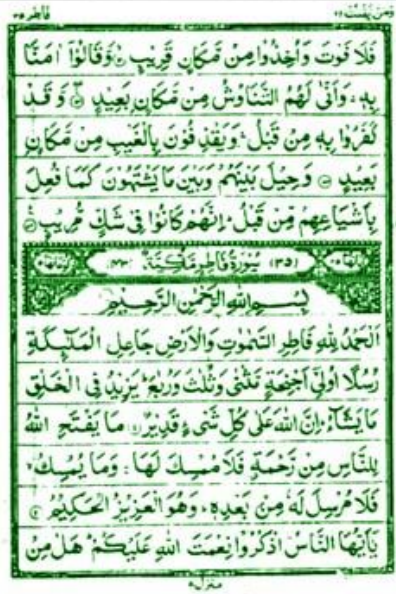 ومن یقنت ۲۲ فاطر ۳۵
فَلَا فَوْتَ وَاُخِذُوْا مِنْ مَّكَانٍ قَرِیْبٍ وَّقَالُوْۤا اٰمَنَّا
بِهٖ وَاَنّٰی لَهُمُ التَّنَاوُشُ مِنْ مَّكَانٍۭ بَعِیْدٍ وَّقَدْ
كَفَرُوْا بِهٖ مِنْ قَبْلُ وَیَقْذِفُوْنَ بِالْغَیْبِ مِنْ مَّكَانٍۭ
بَعِیْدٍ وَحِیْلَ بَیْنَهُمْ وَبَیْنَ مَا یَشْتَهُوْنَ كَمَا فُعِلَ
بِاَشْیَاعِهِمْ مِّنْ قَبْلُ اِنَّهُمْ كَانُوْا فِیْ شَكٍّ مُّرِیْبٍ
(۳۵) سُوْرَةُ فَاطِرٍ مَّكِّیَّةٌ (۴۳)
بِسْمِ اللّٰهِ الرَّحْمٰنِ الرَّحِیْمِ
اَلْحَمْدُ لِلّٰهِ فَاطِرِ السَّمٰوٰتِ وَالْاَرْضِ جَاعِلِ الْمَلٰٓئِكَةِ
رُسُلًا اُولِیْۤ اَجْنِحَةٍ مَّثْنٰی وَثُلٰثَ وَرُبٰعَ یَزِیْدُ فِی الْخَلْقِ
مَا یَشَآءُ اِنَّ اللّٰهَ عَلٰی كُلِّ شَیْءٍ قَدِیْرٌ مَا یَفْتَحِ اللّٰهُ
لِلنَّاسِ مِنْ رَّحْمَةٍ فَلَا مُمْسِكَ لَهَا وَمَا یُمْسِكْ
فَلَا مُرْسِلَ لَهٗ مِنْۢ بَعْدِهٖ وَهُوَ الْعَزِیْزُ الْحَكِیْمُ
یٰۤاَیُّهَا النَّاسُ اذْكُرُوْا نِعْمَتَ اللّٰهِ عَلَیْكُمْ هَلْ مِنْ
منزل ۵